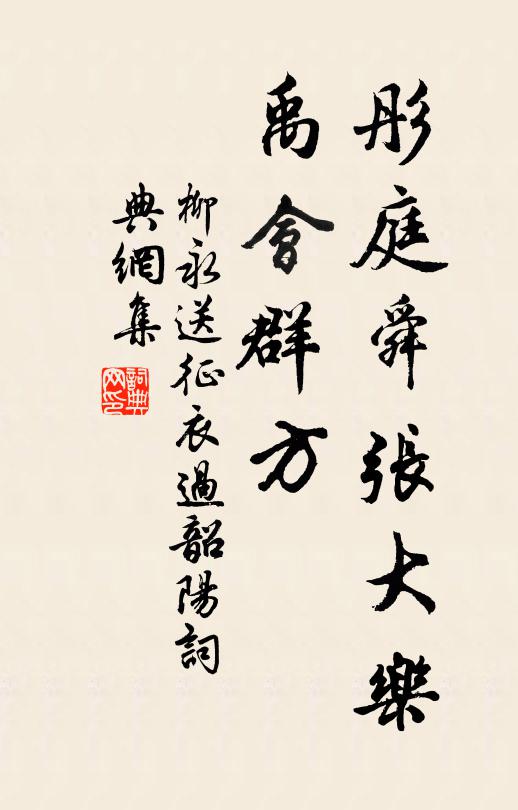 彤庭舜張大樂
禹會群方
柳永送征衣過韶陽詞
典網集
詞典網印